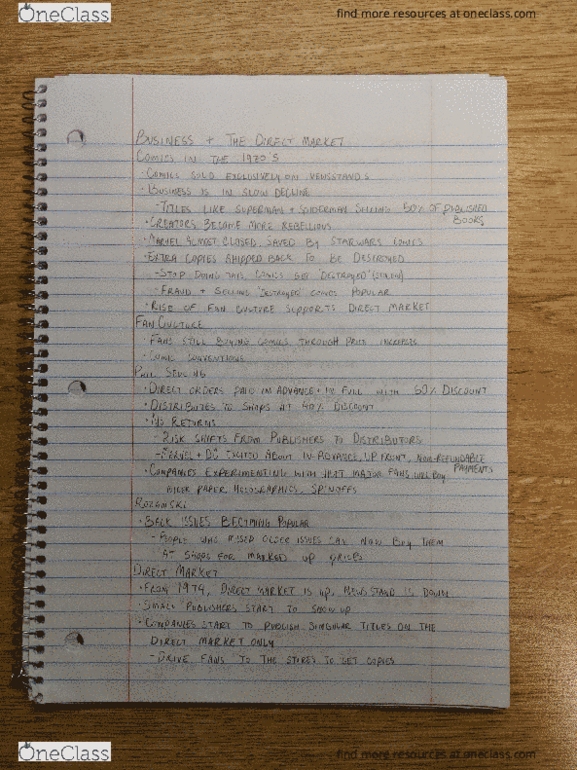 OneClass
find more resources at oneclass.com
BUSINESS + THE DIRECT MARKET
COMICS IN THE 1970'S
- COMICS SOLD EXCLUSIVELY ON NEWSSTANDS
- BUSINESS IS IN SLOW DECLINE
- TITLES LIKE SUPERMAN + SPIDERMAN SELLING 50% OF PUBLISHED BOOKS
- CREATORS BECOME MORE REBELLIOUS
- MARVEL ALMOST CLOSED, SAVED BY STARWARS COMICS
- EXTRA COPIES SHIPPED BACK TO BE DESTROYED
- STOP DOING THIS, COMICS GET "DESTROYED"
- FRAUD + SELLING "DESTROYED" COMICS POPULAR
- RISE OF FAN CULTURE SUPPORTS DIRECT MARKET
FAN CULTURE
- FANS STILL BUYING COMICS THROUGH PRICE INCREASES
- COMIC CONVENTIONS
PHIL SEULING
- DIRECT ORDERS PAID IN ADVANCE + IN FULL WITH 60% DISCOUNT
- DISTRIBUTES TO SHOPS AT 40% DISCOUNT
- NO RETURNS
- RISK SHIFTS FROM PUBLISHERS TO DISTRIBUTORS
- MARVEL + DC EXCITED ABOUT IN-ADVANCE, UP FRONT, NON-REFUNDABLE PAYMENTS
- COMPANIES EXPERIMENTING WITH WHAT MAJOR FANS WILL BUY
PAPER, HOLOGRAPHICS, SPINOFFS
ROZANSKI
- BACK ISSUES BECOMING POPULAR
- PEOPLE WHO MISSED OLDER ISSUES CAN NOW BUY THEM
AT SHOPS FOR MARKED UP PRICES
DIRECT MARKET
- FROM 1979, DIRECT MARKET IS UP, NEWSSTAND IS DOWN
- SMALL PUBLISHERS START TO SHOW UP
- COMPANIES START TO PUBLISH SINGULAR TITLES ON THE
DIRECT MARKET ONLY
- DRIVE FANS TO THE STORES TO GET COPIES
OneClass
find more resources at oneclass.com